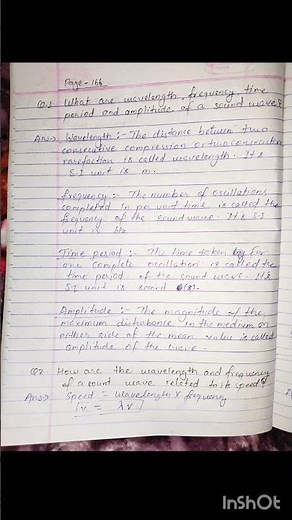 Page - 166
Q.1 What are wavelength, frequency, time
period and amplitude of a sound wave?
Ans:-> Wavelength :- The distance between two
consecutive compression or two consecutive
rarefaction is called wavelength. It's
S.I unit is m.
frequency :- The number of oscillations
completed in per unit time is called the
frequency of the sound wave. It's S.I
unit is Hz
Time period :- The time taken by for
one complete oscillation is called the
time period of the sound wave. It's
SI unit is second (s).
Amplitude :- The magnitude of the
maximum disturbance in the medium on
either side of the mean value is called
amplitude of the wave.
Q2. How are the wavelength and frequency
of a sound wave related to its speed?
Ans:-> Speed = Wavelength x frequency
[v = λν]
InShOt